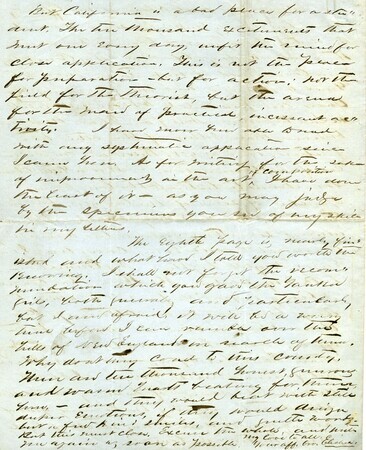 But California is a bad place for a stu-
dent. The ten thousand excitements that
meet one every day, unfit the mind for
close application. This is not the place
for preparation - but for action. not the
field for the Theorist, but the arena
for the man of practical incessant ac-
tivity. I have never
with any systematic application since
I came here. As for writing for the sake
of improvement in the art of composition I have done
the least of it - as you may judge
by the specimens you see of my skill
in my letters.
The Eighth page is nearly fin-
ished and what have I told you worth the
. I shall not forget the recom-
mendation which you gave the Yankee
girls, both generally and particularly,
but I am afraid it will be a long
time before I can ramble over the
hills of New England in search of them.
Why don't they come to this country.
There are ten thousand honest, generous
and warm hearts beating for them
here - and they would beat with still
emotions, if they would deign
but a few kind smiles,
But this must close. Excuse the
you again as soon as possible